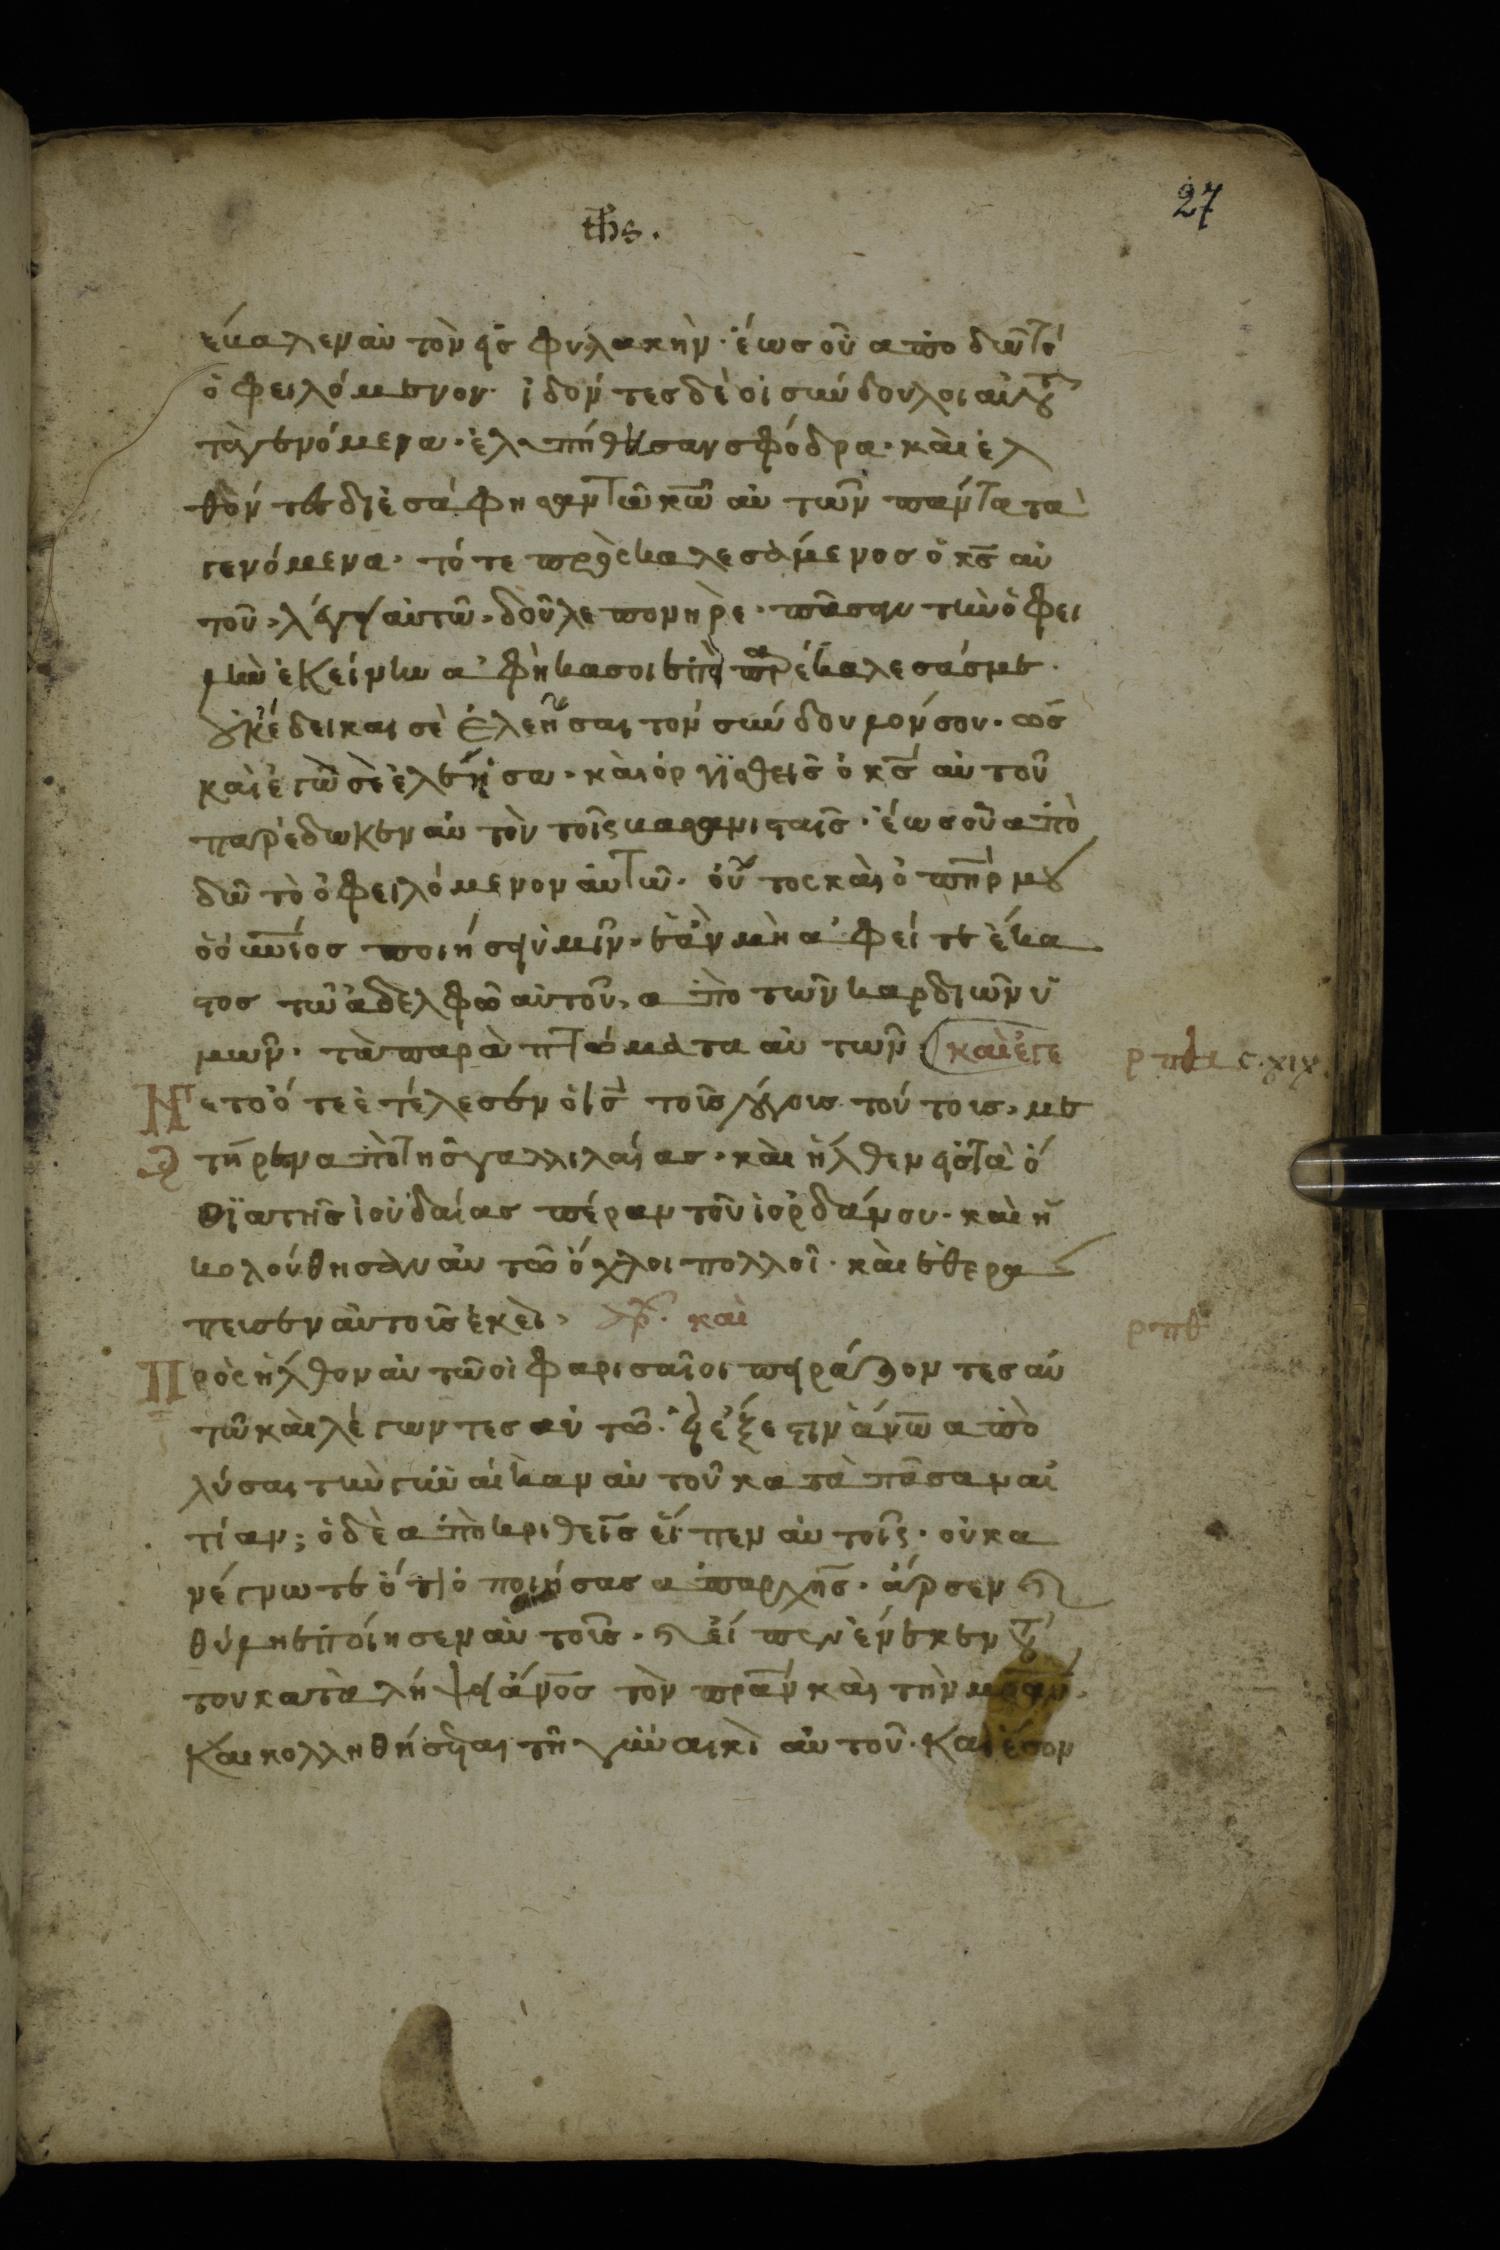 27
ths.
ἔβαλεν αὐτὸν εἰς φυλακὴν· ἕως οὗ ἀποδῶ τὸ
ὀφειλόμενον· ἰδόντες δὲ οἱ σύνδουλοι αὐτοῦ
τὰ γενόμενα· ἐλυπήθησαν σφόδρα· καὶ ἐλ
θόντες διεσάφησαν τῶ κῶ αὐτῶν πάντα τὰ
γενόμενα· τότε προσκαλεσάμενος ὁ κς αὐ
τοῦ, λέγει αὐτῶ, δοῦλε πονηρὲ, πᾶσαν τὴν ὀφει
λὴν ἐκείνην ἀφῆκα σοι ἐπεὶ παρεκάλεσάς με·
οὐκ ἔδει καὶ σὲ ἐλεῆσαι τὸν σύνδουλόν σου· ὡς
καὶ ἐγὼ σὲ ἐλέησα· καὶ ὀργισθεὶς ὁ κς αὐτοῦ
παρέδωκεν αὐτὸν τοῖς βασανισταῖς· ἕως οὗ ἀπο
δῶ τὸ ὀφειλόμενον αὐτῶ· οὕτος καὶ ὁ πηρ μου
ὁ οὐνιος ποιήσει ὑμῖν· ἐὰν μὴ ἀφεῖτε ἕκα
στος τῶ ἀδελφῶ αὐτοῦ, ἀπὸ τῶν καρδιῶν ὑ
μῶν· τὰ παραπτώματα αὐτῶν· καὶ ἐγέ ρπα c. xix.
νετο ὅτε ἐτέλεσεν ὁ ις τοὺς λόγους τούτοις, με
τῆρεν ἀπὸ τῆς γαλλιλαίας· καὶ ἦλθεν εἰς τὰ ὅ
ρια τῆς ἰουδαίας πέραν τοῦ ἰορδάνου· καὶ ἠ
κολούθησαν αὐτῶ ὄχλοι πολλοὶ· καὶ ἐθερά
πευσεν αὐτοὺς ἐκεῖ· καὶ ρπβ
Προσῆλθον αὐτῶ οἱ φαρισαῖοι πειράζοντες αὐ
τὸν καὶ λέγωντες αὐτῶ· εἰ ἔξεστιν ἀνω ἀπο
λύσαι τὴν γυναῖκαν αὐτοῦ κατὰ πᾶσαν αἰ
τίαν; ὁ δὲ ἀποκριθεὶς εἶπεν αὐτοῖς· οὐκ ἀ
νέγνωτε ὅτι ὁ ποιήσας ἀπαρχῆς· ἄρσεν καὶ
θύλη ἐποίησεν αὐτοὺς· καὶ εἶπεν ἕνεκεν τού
του καταλήψει ἄνος τὸν πραν καὶ τὴν μραν·
Καὶ κολληθήσεται τῆ γυναικὶ αὐτοῦ· Καὶ ἔσον